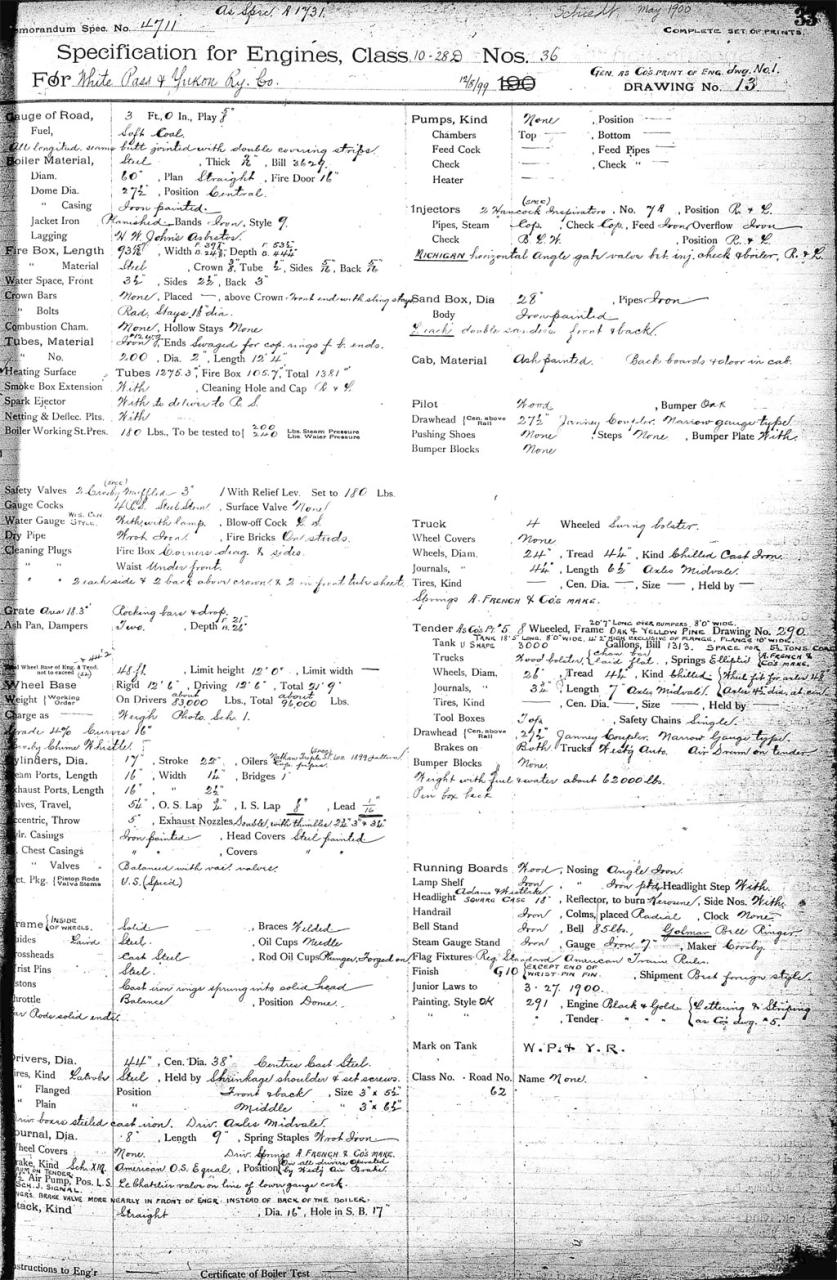 As Spec. A 1731.
May 1900
33
emorandum Spec. No. 4711
COMPLETE SET OF PRINTS.
Specification for Engines, Class 10-28 D Nos. 36
GEN. AS CO'S PRINT OF ENG. dwg. No. 1.
For White Pass & Yukon Ry. Co.
12/8/99 190
DRAWING No. 13
Gauge of Road, 3 Ft., 0 In., Play
Fuel, Soft Coal.
All longitud. seams butt jointed with double covering strips.
Boiler Material, Steel , Thick , Bill 3629.
Diam. 60" , Plan Straight , Fire Door 16"
Dome Dia. 27½ , Position Central.
" Casing Iron painted.
Jacket Iron Planished Bands Iron, Style 9.
Lagging H. W. Johns Asbestos.
Fire Box, Length , Width , Depth
" Material Steel , Crown 3/8" Tube ½, Sides , Back
Water Space, Front 3½ , Sides 2½", Back 3"
Crown Bars None, Placed — , above Crown. Front end with sling stays
" Bolts Rad. Stays 1⅛ dia.
Combustion Cham. None, Hollow Stays None
Tubes, Material Iron Ends Swaged for cop. rings f. b. ends.
" No. 200, Dia. 2", Length 12' 4"
Heating Surface Tubes 1275.3, Fire Box 105.7, Total 1381
Smoke Box Extension With , Cleaning Hole and Cap R & L.
Spark Ejector With to deliver to R. S.
Netting & Deflec. Plts. With
Boiler Working St. Pres. 180 Lbs., To be tested to 200 Lbs. Steam Pressure
240 Lbs. Water Pressure
Safety Valves 2 Crosby Muffled 3" 1 With Relief Lev. Set to 180 Lbs.
Gauge Cocks , Surface Valve None
Water Gauge With, with lamp. , Blow-off Cock
Dry Pipe Wrot Iron , Fire Bricks On studs.
Cleaning Plugs Fire Box Corners diag. & sides.
" " Waist Under front.
" " 2 each side & 2 back above crown & 2 in front tube sheet
Grate Area 18.3 Rocking bars & drop.
Ash Pan, Dampers Two. , Depth F. 21" B. 26"
Total Wheel Base of Eng. & Tend. not to exceed 48 ft. , Limit height 12' 0" , Limit width —
Wheel Base Rigid 12' 6", Driving 12' 6", Total 21' 9"
Weight Working Order On Drivers about 83,000 Lbs., Total about 96,000 Lbs.
Charge as — Weigh Photo. Sch. 1.
Grade 4% Curves 16°
Crosby Chime Whistle.
Cylinders, Dia. 17" , Stroke 22" , Oilers Nathan Triple
team Ports, Length 16" , Width 1¼" , Bridges 1"
xhaust Ports, Length 16" , " 2½"
alves, Travel, 5½" , O. S. Lap , I. S. Lap , Lead 1/16
ccentric, Throw 5" , Exhaust Nozzles Double, with thimbles 2¾" 3" & 3¼"
lr. Casings Iron painted , Head Covers Steel painted
Chest Casings " " , Covers " "
" Valves Balanced with vac. valves.
et. Pkg. Piston Rods Valve Stems U.S. (Spec'd)
rame INSIDE OF WHEELS. Solid , Braces Welded
uides Laird Steel. , Oil Cups Needle
rossheads Cast Steel , Rod Oil Cups Plunger, Forged on
rist Pins Steel.
stons Cast iron rings sprung into solid head
hrottle Balance , Position Dome.
ar Rods solid ends.
rivers, Dia. 44" , Cen. Dia. 38" Centres Cast Steel.
ires, Kind Latrobe Steel , Held by Shrinkage shoulder & set screws.
" Flanged Position Front & back , Size 3" x 5½"
" Plain " Middle " 3" x 6½"
Driv. boxes steeled cast iron. Driv. Axles Midvale.
ournal, Dia. 8" , Length 9" , Spring Staples Wrot Iron
heel Covers None. Driv. Springs A. FRENCH & CO'S MAKE.
rake, Kind Sch. XIII. American O.S. Equal. , Position On all drivers operated by West'g Air Brake.
DRUM ON TENDER.
Air Pump, Pos. L. S. Le Chatelier valve on line of lower gauge cock.
SCH. J. SIGNAL.
ENGR'S. BRAKE VALVE MORE NEARLY IN FRONT OF ENGR. INSTEAD OF BACK OF THE BOILER.
tack, Kind Straight , Dia. 16", Hole in S. B. 17"
structions to Eng'r — Certificate of Boiler Test —
Pumps, Kind None , Position —
Chambers Top — , Bottom —
Feed Cock — , Feed Pipes —
Check — , Check " —
Heater —
Injectors 2 Hancock Inspirators (spec) , No. 7 A , Position R. & L.
Pipes, Steam Cop. , Check Cop., Feed Iron, Overflow Iron
Check B. L. W. , Position R. & L.
MICHIGAN horizontal angle gate valve bet. inj. check & boiler, R. & L.
Sand Box, Dia 28" , Pipes Iron
Body Iron painted
2 each double sanders front & back.
Cab, Material Ash painted. Back boards & door in cab.
Pilot Wood , Bumper Oak
Drawhead Cen. above Rail 27½" Janney Coupler. Narrow gauge type
Pushing Shoes None , Steps None , Bumper Plate With.
Bumper Blocks None
Truck 4 Wheeled Swing bolster.
Wheel Covers None
Wheels, Diam. 24" , Tread 4¼" , Kind Chilled Cast Iron.
Journals, " 4¼" , Length 6½ Axles Midvale.
Tires, Kind — , Cen. Dia. — , Size — , Held by —
Springs A. FRENCH & CO'S MAKE.
20' 7" LONG OVER BUMPERS, 8' 0" WIDE.
Tender As Co's Pt. #5 8 Wheeled, Frame OAK & YELLOW PINE Drawing No. 290.
Tank U SHAPE 3000 Gallons, Bill 1313. SPACE FOR 5½ TONS COAL
Trucks Wood bolster, chan. bar laid flat. , Springs Elliptic A. FRENCH & CO'S MAKE.
Wheels, Diam. 26" , Tread 4¼" , Kind Chilled
Journals, " 3½ , Length 7" Axles Midvale.
Tires, Kind — , Cen. Dia. — , Size — , Held by
Tool Boxes Tops , Safety Chains Single.
Drawhead Cen. above Rail 27½" Janney Coupler. Narrow Gauge Type
Brakes on Both Trucks West'g Auto. Air Drum on tender
Bumper Blocks None.
Weight with fuel & water about 62000 lbs.
Pin box back
Running Boards Wood , Nosing Angle Iron.
Lamp Shelf Iron , " Iron ptd. Headlight Step With.
Headlight Adams & Westlake SQUARE CASE 18" , Reflector, to burn Kerosene, Side Nos. With.
Handrail Iron , Colms, placed Radial , Clock None
Bell Stand Iron , Bell 85 lbs., Golmar Bell Ringer.
Steam Gauge Stand Iron , Gauge Iron 7" , Maker Crosby
Flag Fixtures Reg. Standard American Train Rules.
Finish G 10 EXCEPT END OF WRIST PIN PIN. , Shipment Best foreign style.
Junior Laws to 3 . 27 . 1900.
Painting, Style OK 291 , Engine Black & Gold Lettering & Striping
" " , Tender " " as Co's dwg. #5.
Mark on Tank W. P. & Y. R.
Class No. - Road No. 62 Name None.